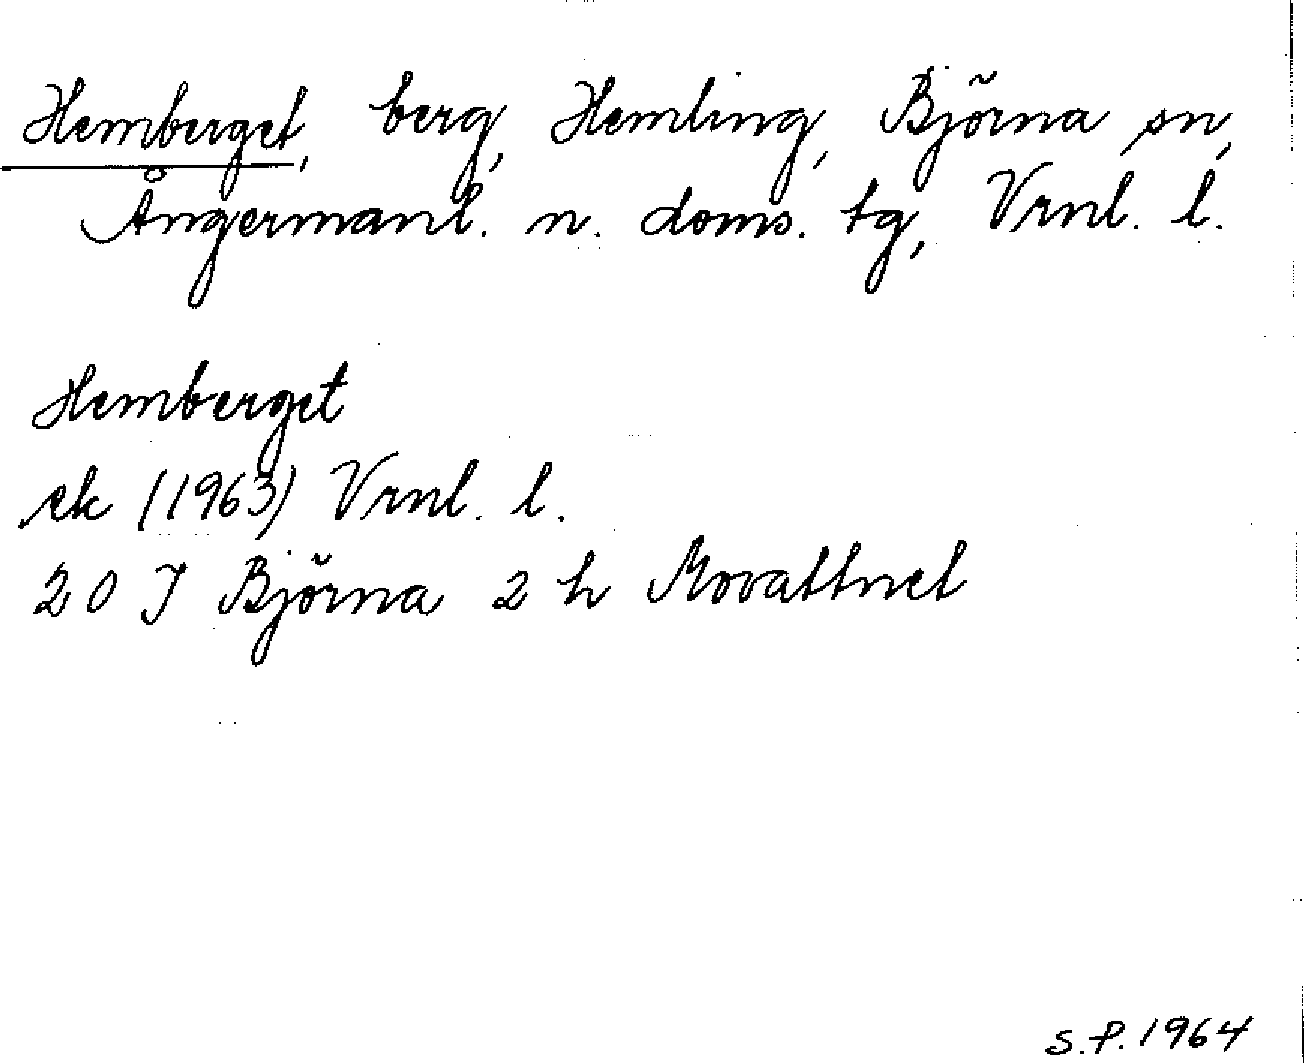 Hemberget, berg, Hemling, Björna sn,
Ångermanl. n. doms. tg, Vrnl. l.
Hemberget
ek (1963) Vrnl. l.
20 J Björna 2 h Movattnet
S.P. 1964